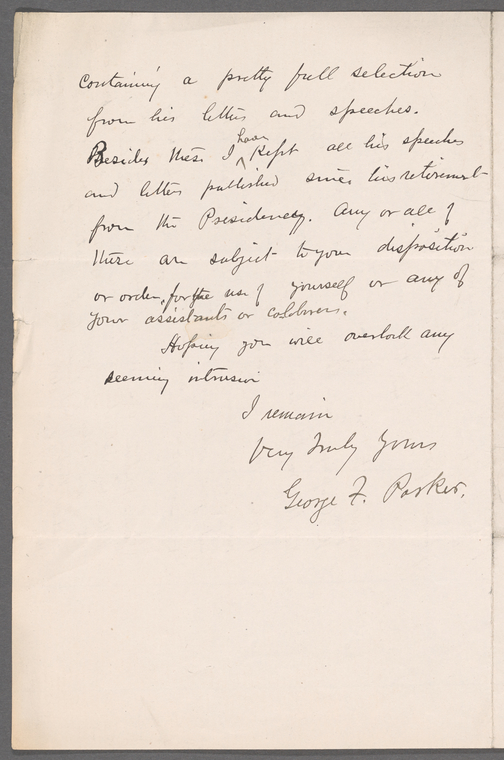 containing a pretty full selection
from his letters and speeches.
Besides these I have kept all his speeches
and letters published since his retirement
from the Presidency. Any or all of
these are subject to your disposition
or order, for the use of yourself or any of
your assistants or colaborers.
Hoping you will overlook any
seeming intrusion
I remain
Very truly yours
George F. Parker.